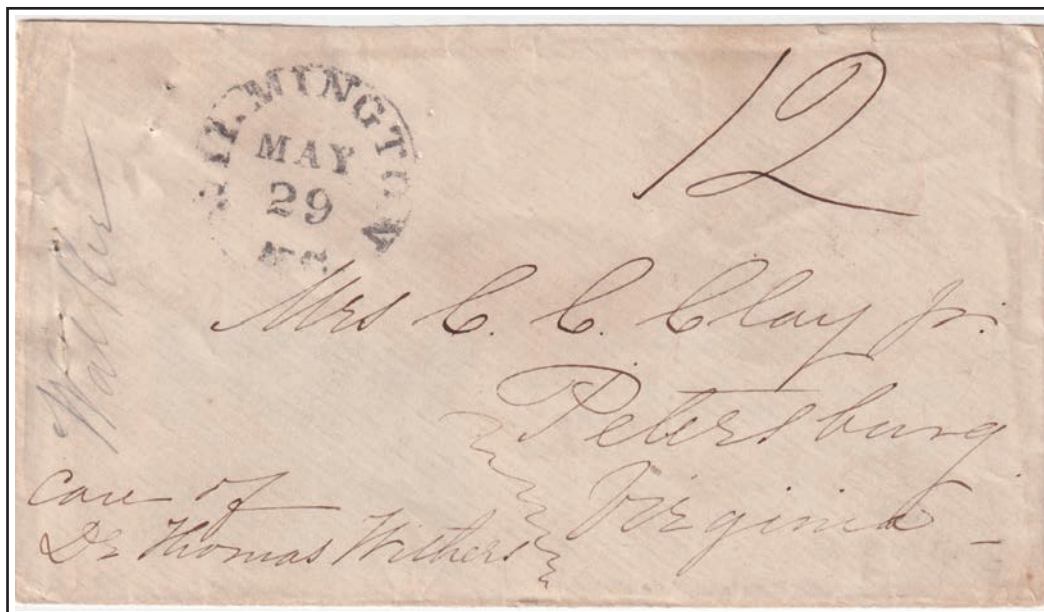 WILMINGTON
MAY
29
N.C.
12
Mrs C. C. Clay Jr.
Petersburg
Virginia
care of
Dr Thomas Withers